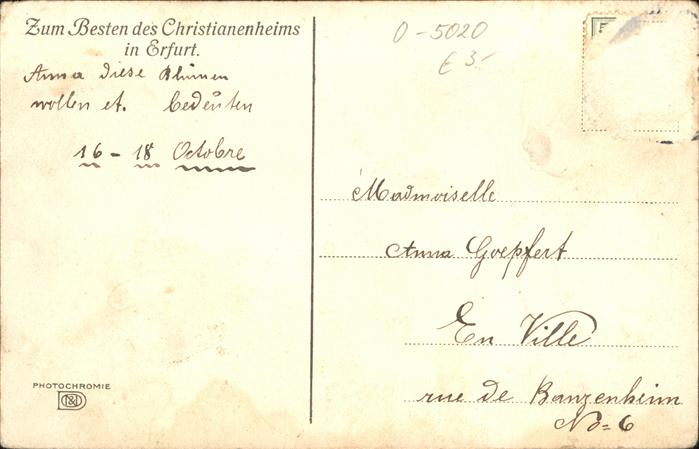 Zum Besten des Christianenheims
in Erfurt.
Anna diese Blumen
wollen et. bedeuten
16 - 18 Octobre
0-5020
€ 3.-
Madmoiselle
Anna Goepfert
En Ville
rue de Banzenheim
No= 6
PHOTOCHROMIE